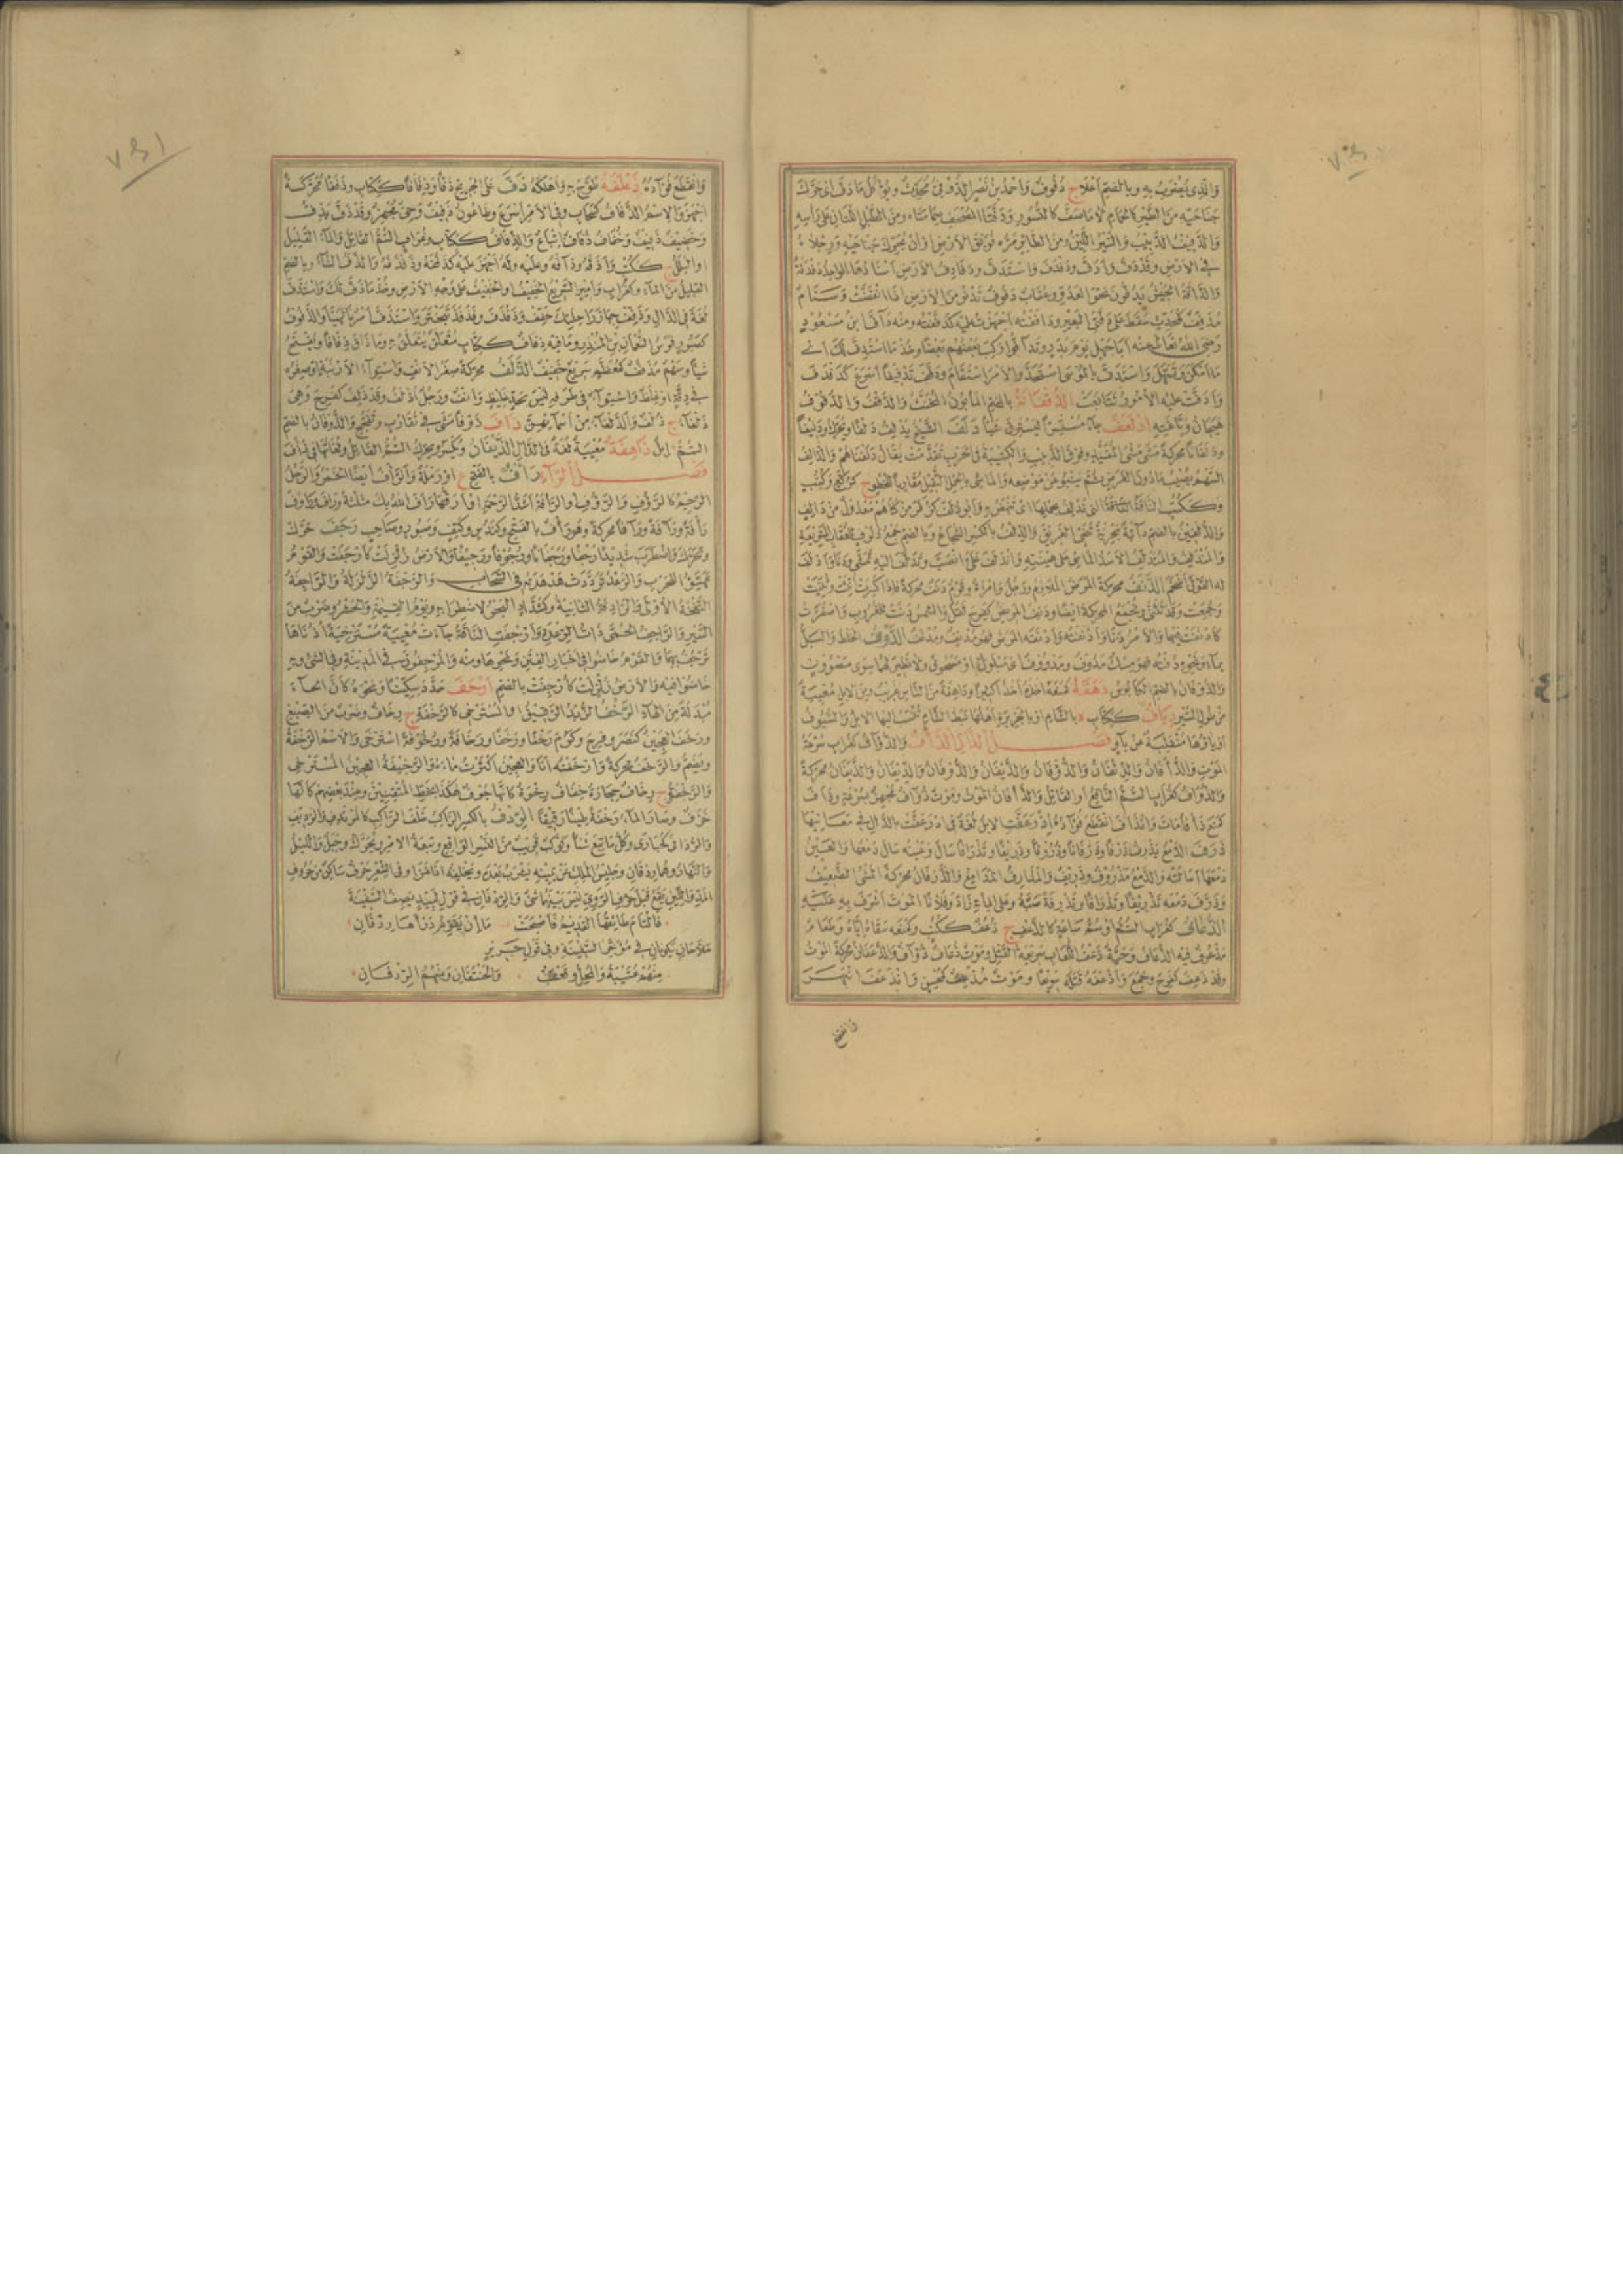 والذي يضرب به وبالضم أعلا ج دفوف وأحمد بن نصر الدفي محدث ويؤكل ما دف أي حرك
جناحيه من الطير كالحمام لا ما صف كالنسور ودفتا المصحف ضمامتاه ومن الطبل اللتان على رأسه
والدفيف الدبيب والسير اللين ومن الطائر مره فويق الأرض أو أن يحرك جناحيه ورجلاه
في الأرض وقد دف وأدف ودفدف واستدف ودفادف الأرض أسنادها الواحدة دفدفة
والدافة الجيش يدفون نحو العدو وعقاب دفوف تدنو من الأرض إذا انقضت وسنام
مدفف كمحدث سقط على دفتي البعير ودافقته أجهزت عليه كدففته ومنه داف ابن مسعود
رضي الله تعالى عنه أبا جهل يوم بدر وتدافوا ركب بعضهم بعضا وخذ ما استدف لك أي
ما أمكن وتسهل واستدف بالموسى استحد والأمر استقام ودفف تدفيفا أسرع كدفدف
وأدفت عليه الأمور تتابعت
جاء مستسرا ليسرق شيئا دلف الشيخ يدلف دلفا ويحرك ودليفا
ودلفانا محركة مشى مشي المقيد وفوق الدبيب والكتيبة في الحرب تقدمت يقال دلفناهم والدالف
السهم يصيب ما دون الغرض ثم ينبو عن موضعه والماشي بالحمل الثقيل مقاربا للخطو ج كركع وككتب
والدلفين بالضم دابة بحرية تنجي الغريق والدلف بالكسر الشجاع وبالضم جمع دلوف للعقاب السريعة
الدنف محركة المرض الملازم ورجل وامرأة وقوم دنف محركة فإذا كسرت أنثت وثنيت
وجمعت وقد تثنى وتجمع المحركة أيضا ودنف المريض كفرح ثقل والشمس دنت للغروب واصفرت
كأدنفت فيهما والأمر دنا وأدنفته وأدنفه المرض فهو مدنف ومدنف الدوف الخلط والبل
بماء ونحوه دفته فهو مسك مدوف ومدووف أي مبلول أو مسحوق ولا نظير لها سوى مصوون
والدوفان بالضم الكابوس دهفه كمنعه أخذه أخذا كثيرا وداهفة من الناس غريب ومن الإبل معيية
من طول السير دياف ككتاب ة بالشام أو بالجزيرة أهلها نبط الشام تنسب إليها الإبل والسيوف
أو ياؤها منقلبة عن واو فصل الذال الذأف والذؤاف كغراب سرعة
الموت
والذؤاف كغراب السم الناقع أو القاتل والذأفان الموت وموت ذؤاف مجهز بسرعة وذأف
كمنع ذأفا مات وانذأف انقطع فؤاده اذرعفت الإبل لغة في ادرعفت بالدال في معانيها
ذرف الدمع يذرف ذرفا وذرفانا وذروفا وذريفا وتذرافا سال وعينه سال دمعها والعين
دمعها أسالته والدمع مذروف وذريف والمذارف المدامع والذرفان محركة المشي الضعيف
وذرف دمعه تذريفا وتذرافا وتذرفة صبه وعلى المائة زاد وفلانا الموت أشرف به عليه
الذعاف كغراب السم أو سم ساعة كالذعف ج ذعف ككتب وكمنعه سقاه إياه وطعام
مذعوف فيه الذعاف وحية ذعف اللعاب سريعة القتل وموت ذعاف ذؤاف والذعفان محركة الموت
وقد ذعف كفرح وجمع وأذعفه قتله سريعا وموت مذعف كمحسن وانذعف انبهر
وانقطع
وانقطع فؤاده ذعلفه طوح به وأهلكه ذف على الجريح ذفا وذفافا ككتاب وذففا محركة
أجهز والاسم الذفاف كسحاب وفي الأمر أسرع وطاعون ذفيف وحي مجهز وقد ذف يذف
وخفيف ذفيف وخفاف ذفاف إتباع والذفاف ككتاب وغراب السم القاتل والماء القليل
أو البلل ج ككتب
القليل من الماء وكغراب وأمير السريع الخفيف
كصبور فرس النعمان بن المنذر وما فيه ذفاف ككتاب متعلق يتعلق به وما ذاق ذفافا ويفتح
شيئا وسهم مذفف كمعظم سريع خفيف الذلف محركة صغر الأنف واستواء الأرنبة أو صغره
في دقة أو غلظ واستواء في طرفه ليس بحد غليظ وأنف ورجل أذلف وقد ذلف كفرح وهي
ذلفاء ج ذلف والذلفاء من أسمائهن ذاف ذوفا مشى في تقارب وتفحج والذوفان بالضم
السم إبل ذاهفة معيية لغة في الدال الذيفان ويكسر ويحرك السم القاتل
فصل الراء رأف بالفتح ع أو رملة والرأف أيضا الخمر والرجل
الرحيم كالرؤف والرؤوف والرأفة أشد الرحمة أو أرقها رأف الله بك مثلثة
رأفة ورآفة ورأفا محركة وهو رأف بالفتح وكندس وككتف وصبور وصاحب رجف حرك
وتحرك واضطرب شديدا رجفا ورجفانا ورجوفا ورجيفا والأرض زلزلت كأرجفت والقوم
تهيؤا للحرب والرعد ترددت هدهدته في السحاب والرجفة الزلزلة والراجفة
النفخة الأولى والرادفة الثانية وكشداد البحر لاضطرابه ويوم القيامة والحشر وضرب من
السير والراجف الحمى ذات الرعدة وأرجفت الناقة جاءت معيية مسترخية أذناها
ترجف بهما والقوم خاضوا في أخبار الفتن ونحوها ومنه والمرجفون في المدينة وفي الشيء وبه
خاضوا فيه والأرض زلزلت كأرجفت بالضم أرحف حدد سكينا ونحوه كأن الحاء
مبدلة من الهاء الرخف الزبد الرقيق أو المسترخي كالرخفة ج رخاف وضرب من الصبغ
ورخف العجين كنصر وفرح وكرم رخفا ورخفا ورخافة ورخوفة استرخى والاسم الرخفة
ويضم والرخف محركة وأرخفته أنا والعجين أكثرت ماءه والرخيفة العجين المسترخي
والرخفة ج رخاف حجارة خفاف رخوة كأنها جوف هكذا بخط المتقنين وعند بعضهم كأنها
خزف وصار الماء رخفة طينا رقيقا الردف بالكسر الراكب خلف الراكب كالمرتدف والرديف
والردافى كحبارى وكل ما تبع شيئا وكوكب قريب من النسر الواقع وتبعة الأمر ويحرك وجبل والليل
والنهار وهما ردفان وجليس الملك عن يمينه يشرب بعده ويخلفه إذا غزا وفي الشعر حرف ساكن من حروف
المد واللين يقع قبل حرف الروي ليس بينهما شيء والردفان في قول لبيد يصف السفينة
فالتام طائقها القديم فأصبحت ما إن يقوم درأها ردفان
ملاحان يكونان في مؤخر السفينة وفي قول جرير
منهم عتيبة والمحل وقعنب والحنتفان ومنهم الردفان